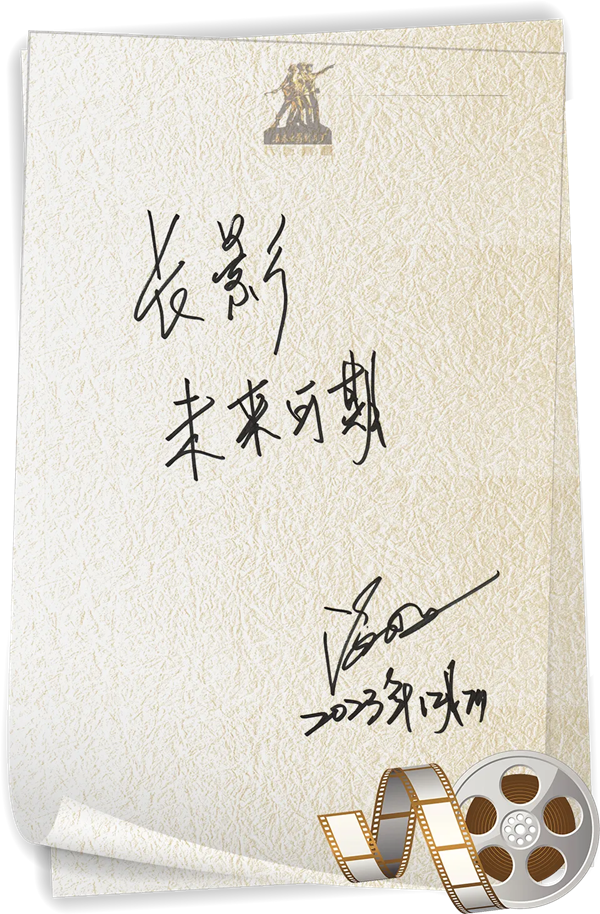 长影
未来可期
2023年12月